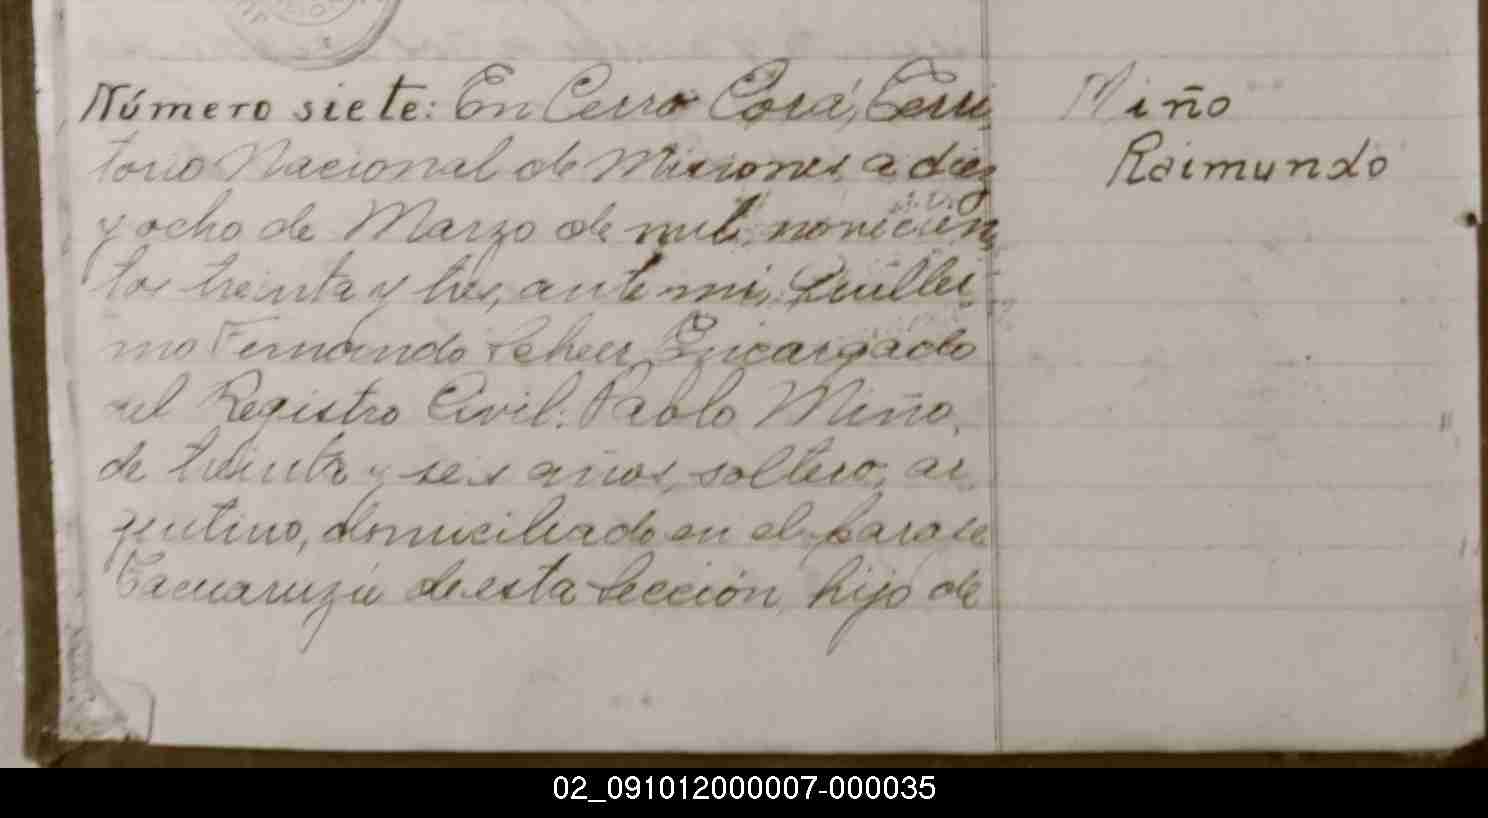 Número siete: En Cerro Corá, Terri
torio Nacional de Misiones a diez
y ocho de Marzo de mil novecien
tos treinta y tres, ante mi, Guiller
mo Fernando Scheer Encargado
del Registro Civil: Pablo Miño,
de treinta y seis años, soltero, ar
gentino, domiciliado en el paraje
Tacuaruzú de esta Sección, hijo de
Miño
Raimundo
02_091012000007-000035